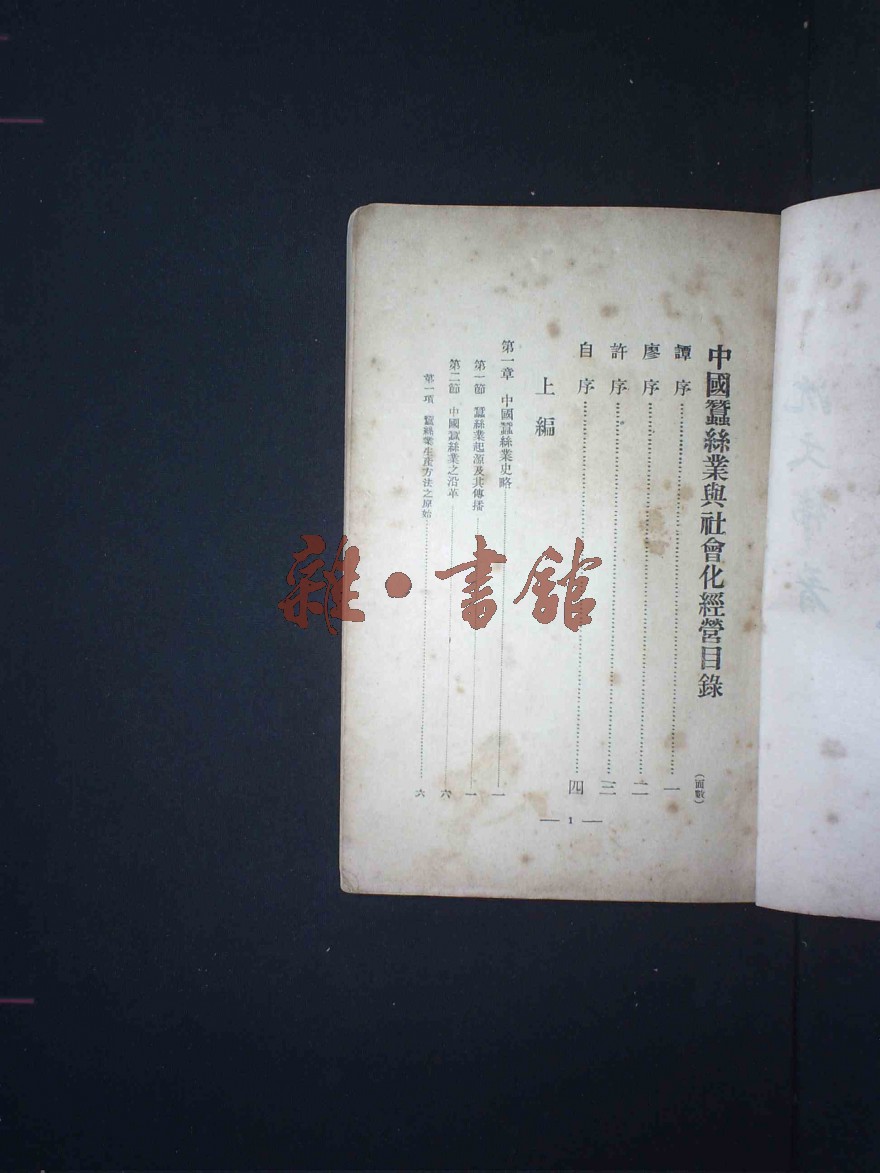 中國蠶絲業與社會化經營目錄
(面數)
譚序……一
廖序……二
許序……三
自序……四
上編
第一章 中國蠶絲業史略……一
第一節 蠶絲業起源及其傳播……一
第二節 中國蠶絲業之沿革……六
第一項 蠶絲業生產方法之原始……六
— 1 —
雜·書館